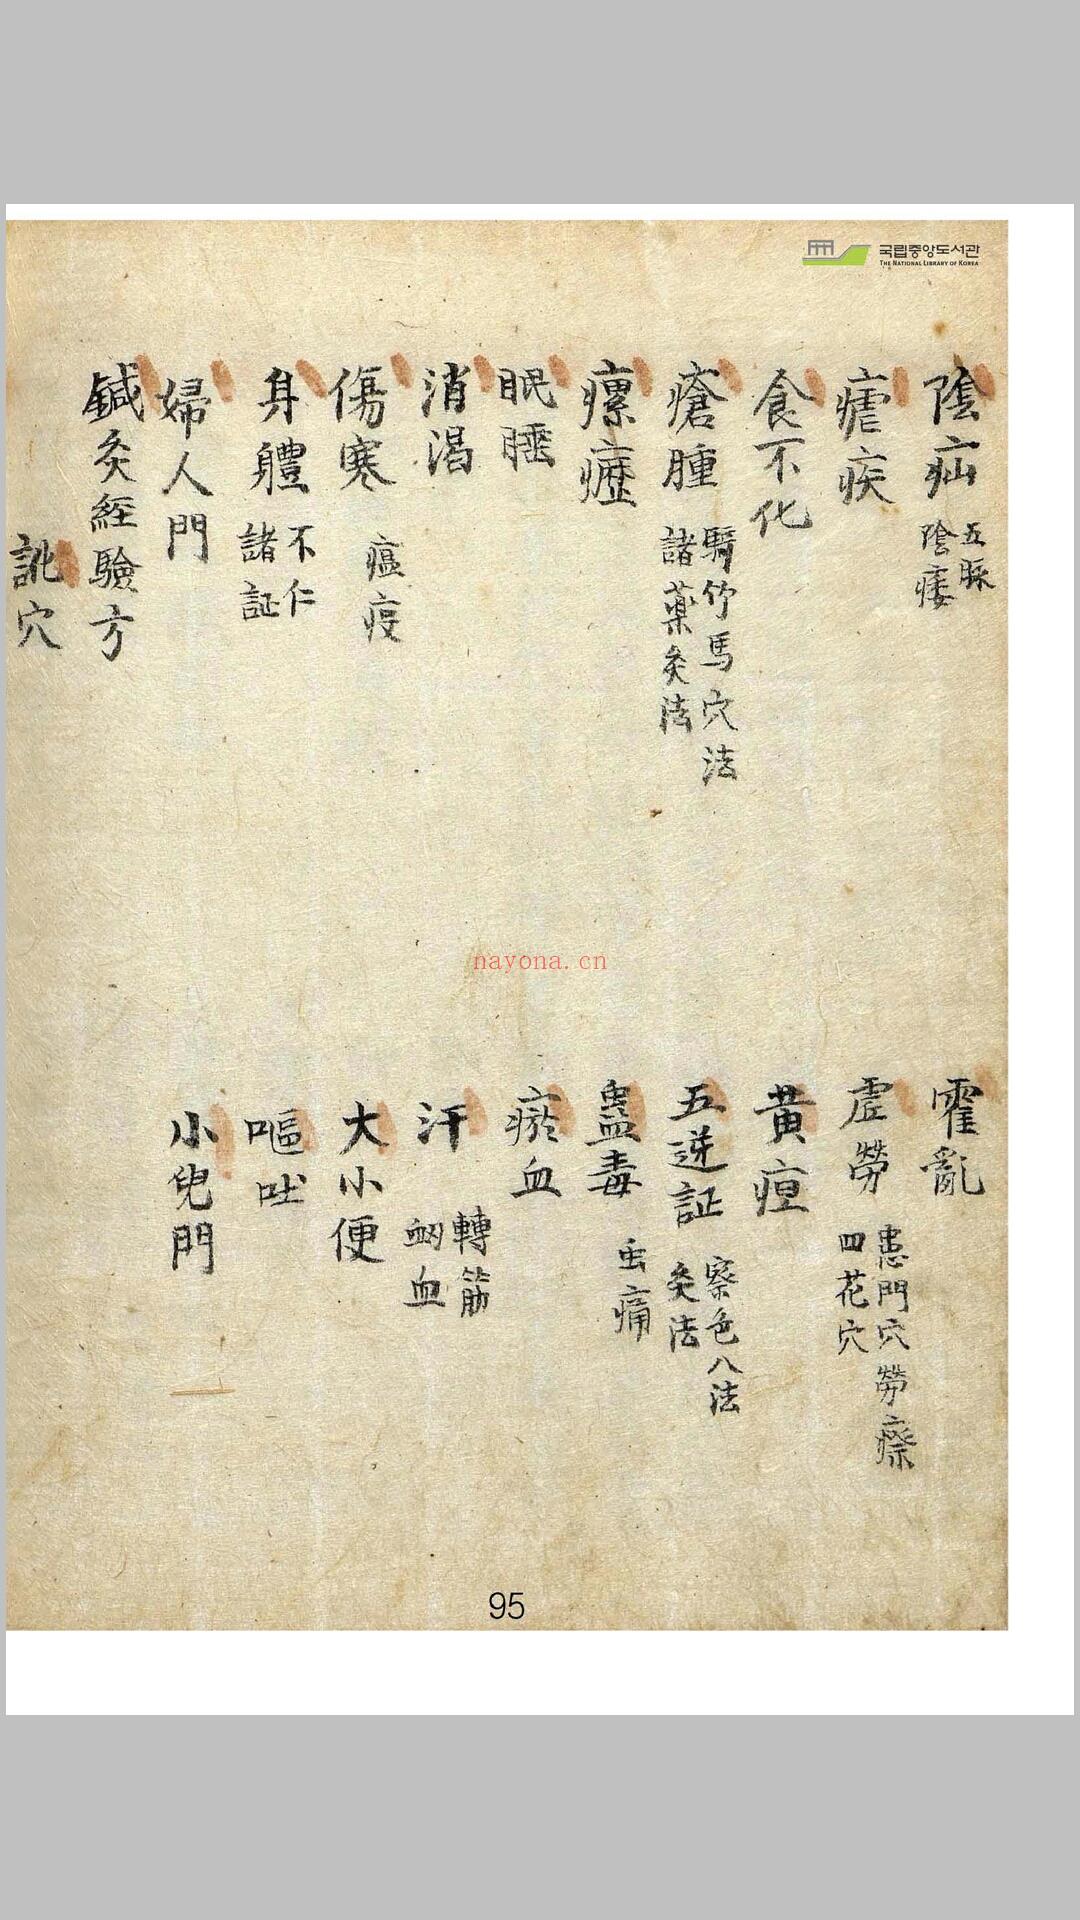 국립중앙도서관
THE NATIONAL LIBRARY OF KOREA
陰疝 五脈 陰痿
霍亂
瘧疾
虛勞 患門穴 勞瘵 四花穴
食不化
黃疸
瘡腫 騎竹馬穴法 諸藥灸法
五逆証 察色八法 灸法
瘰癧
蠱毒 虫痛
眠睡
瘀血
消渴
汗 轉筋 衂血
傷寒 瘟疫
大小便
身體 不仁 諸証
嘔吐
婦人門
小兒門
鍼灸經驗方
訛穴
nayona.cn
95